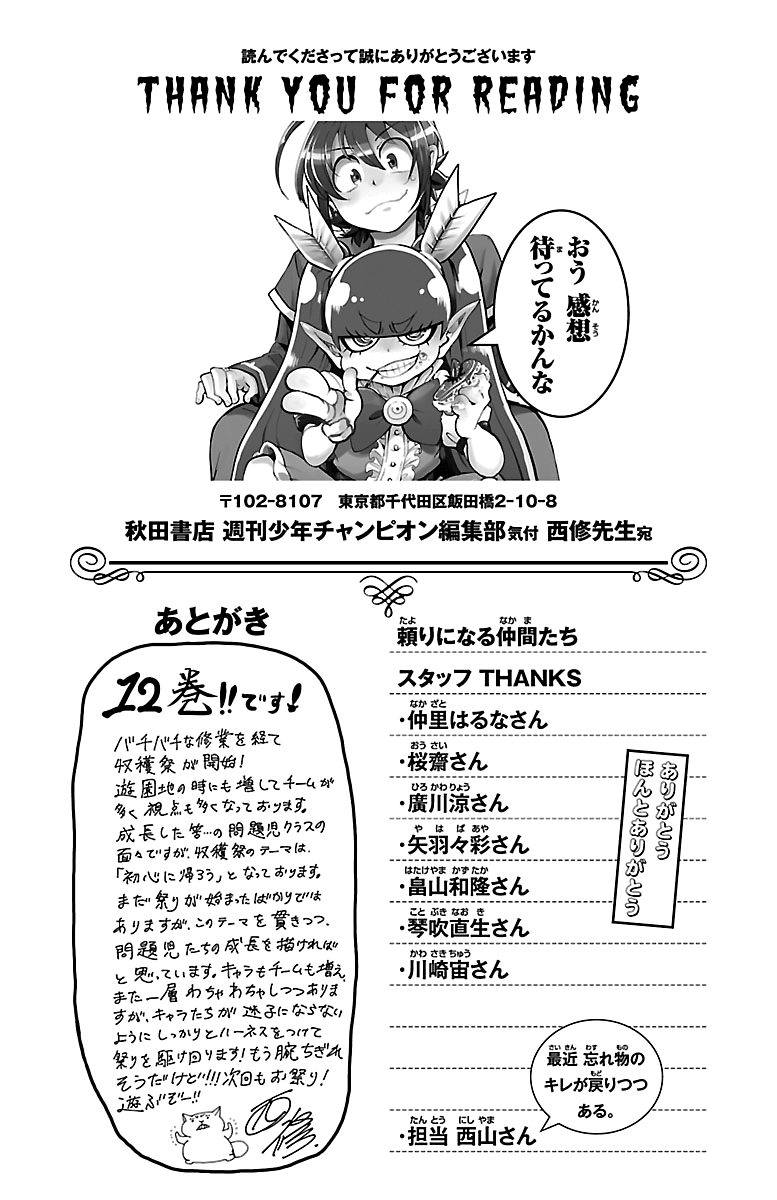 読んでくださって誠にありがとうございます
THANK YOU FOR READING
おう 感想
待ってるかんな
〒102-8107 東京都千代田区飯田橋2-10-8
秋田書店 週刊少年チャンピオン編集部気付 西修先生宛
あとがき
12巻!!です!
バチバチな修業を経て
収穫祭が開始!
遊園地の時にも増してチームが
多く視点も多くなっております。
成長した筈…の問題児クラスの
面々ですが、収穫祭のテーマは、
「初心に帰ろう」となっております。
まだ祭りが始まったばかりでは
ありますが、このテーマを貫きつつ、
問題児たちの成長を描ければ
と思っています。キャラもチームも増え、
また一層わちゃわちゃしつつありま
すが、キャラたちが迷子にならない
ようにしっかりとハーネスをつけて
祭りを駆け回ります!もう腕ちぎれ
そうだけど!!!次回もお祭り!
遊ぶぞー!!
西修.
頼りになる仲間たち
スタッフ THANKS
・仲里はるなさん
・桜齋さん
・廣川涼さん
・矢羽々彩さん
・畠山和隆さん
・琴吹直生さん
・川崎宙さん
ありがとう
ほんとありがとう
最近 忘れ物の
キレが戻りつつ
ある。
・担当 西山さん